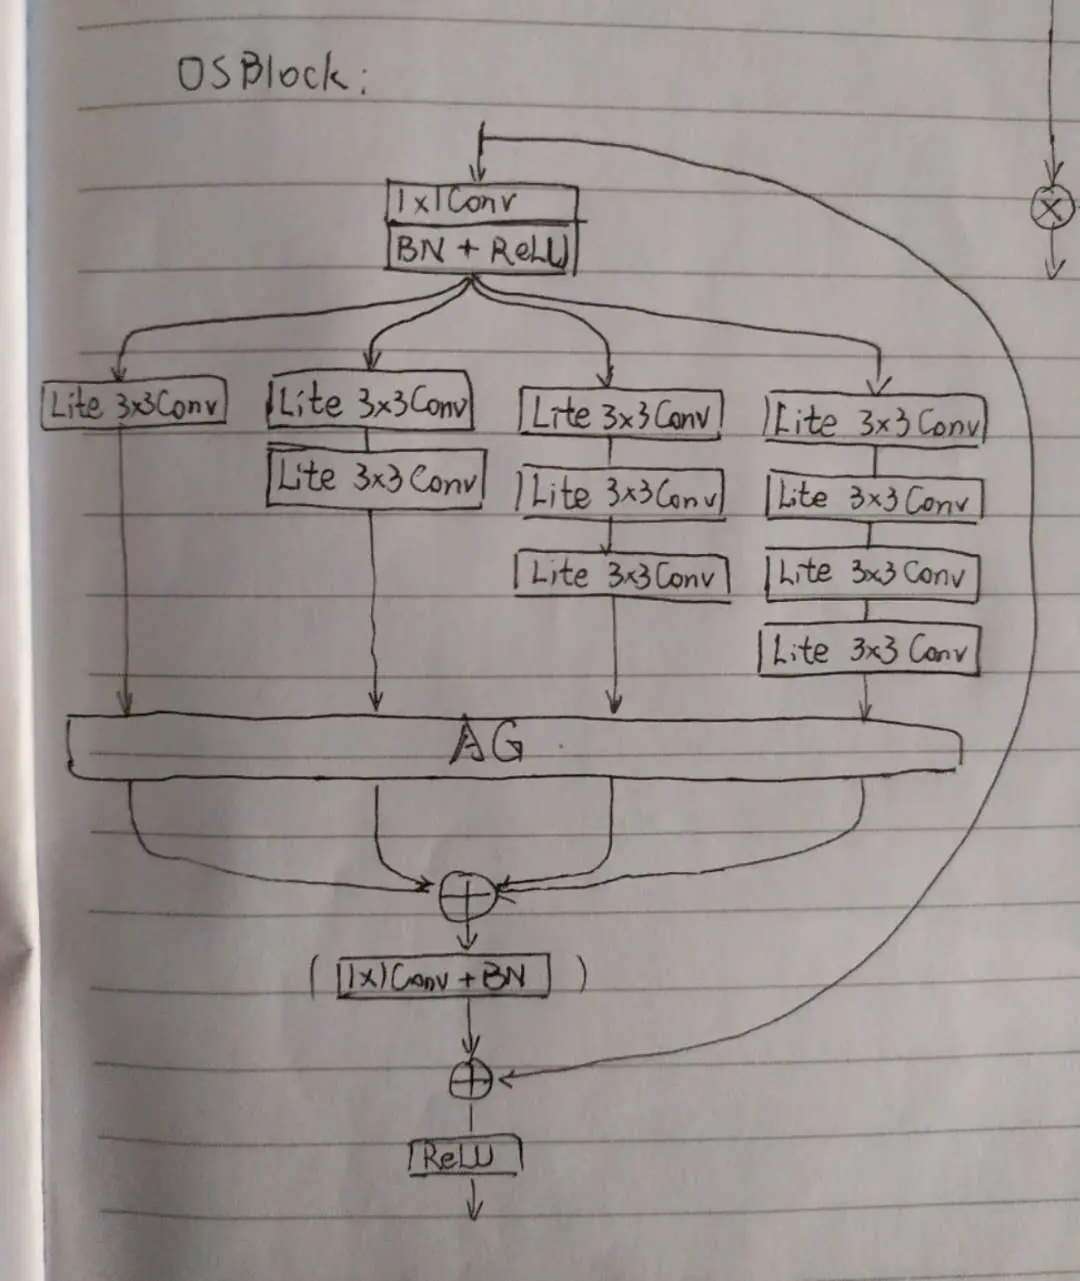 OSBlock:
1x1Conv
BN + ReLU
Lite 3x3Conv Lite 3x3Conv Lite 3x3Conv Lite 3x3Conv
Lite 3x3Conv Lite 3x3Conv Lite 3x3Conv
Lite 3x3Conv Lite 3x3Conv
Lite 3x3Conv
AG
( 1x1Conv + BN )
ReLU